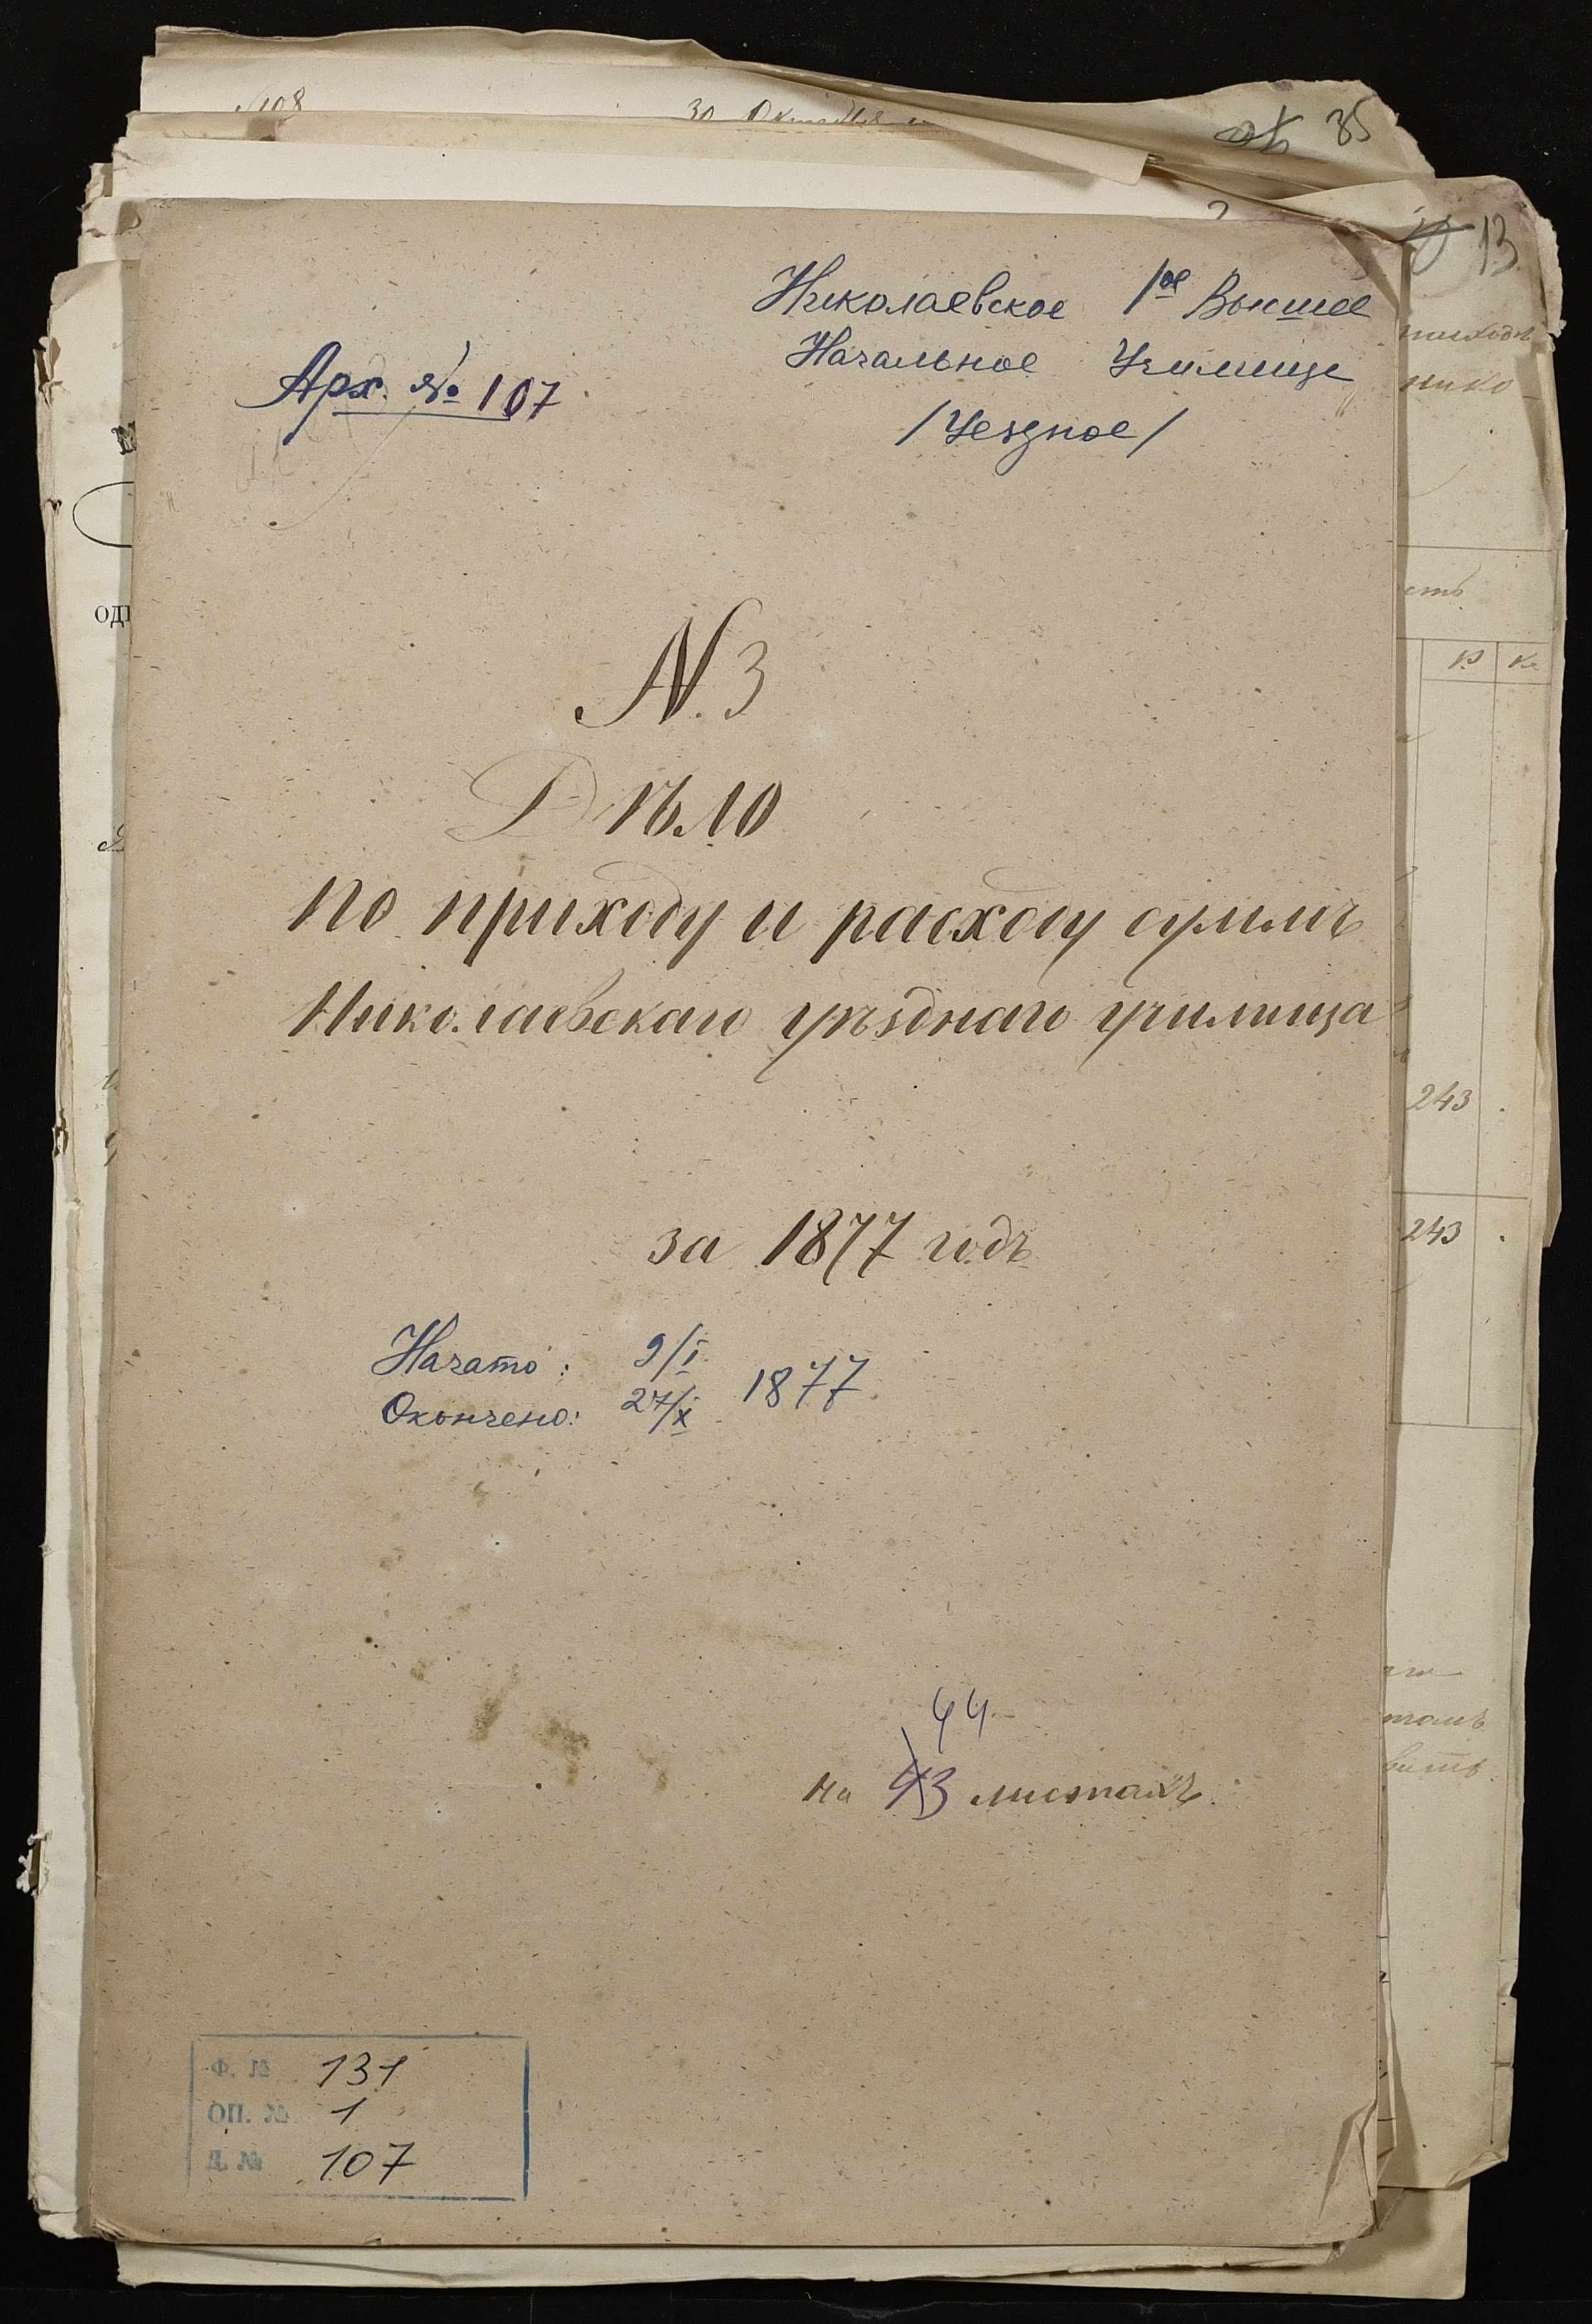 № 108 30 Октября
35
13
Николаевское 1ое Высшее
Начальное Училище
/Уездное/
Арх. № 107
N. 3
Дѣло
по приходу и расходу суммъ
Николаевскаго уѣзднаго училища
за 1877 годъ
Начато: 9/I 1877
Окончено: 27/X
44
на 43 листахъ
Ф. № 131
ОП. № 1
Д. № 107
нико
сть
Р. Ко
243
243